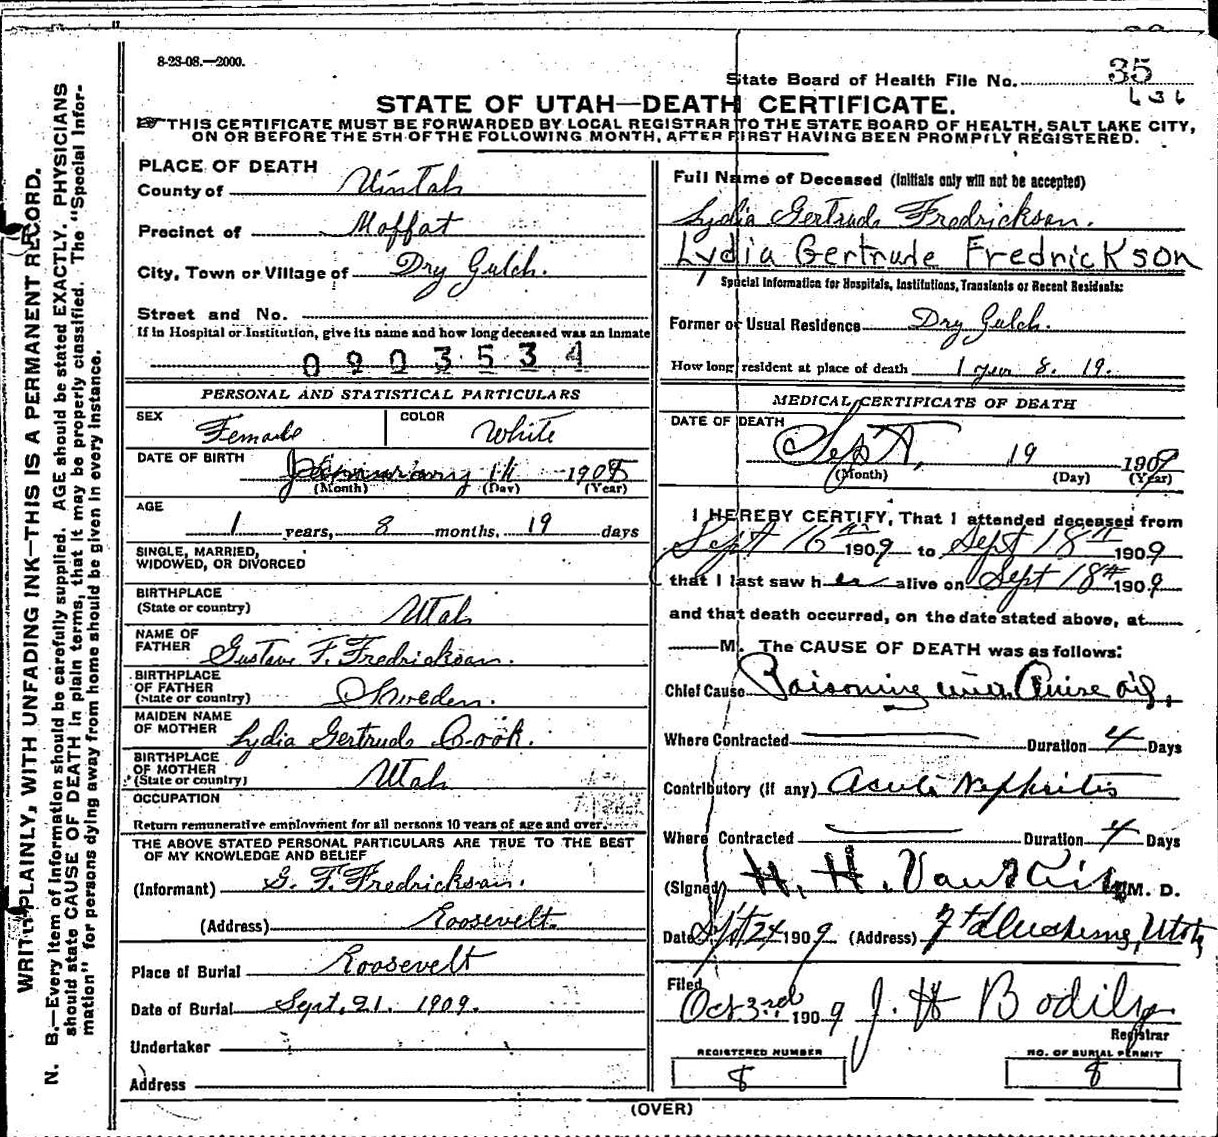 8-23-08.—2000.
State Board of Health File No. 35
636
STATE OF UTAH—DEATH CERTIFICATE.
THIS CERTIFICATE MUST BE FORWARDED BY LOCAL REGISTRAR TO THE STATE BOARD OF HEALTH, SALT LAKE CITY,
ON OR BEFORE THE 5TH OF THE FOLLOWING MONTH, AFTER FIRST HAVING BEEN PROMPTLY REGISTERED.
WRITE PLAINLY, WITH UNFADING INK—THIS IS A PERMANENT RECORD.
N. B.—Every item of information should be carefully supplied. AGE should be stated EXACTLY. PHYSICIANS
should state CAUSE OF DEATH in plain terms, that it may be properly classified. The "Special Infor-
mation" for persons dying away from home should be given in every instance.
PLACE OF DEATH
County of Uintah
Precinct of Moffat
City, Town or Village of Dry Gulch.
Street and No.
If in Hospital or Institution, give its name and how long deceased was an inmate
0903534
PERSONAL AND STATISTICAL PARTICULARS
SEX Female COLOR White
DATE OF BIRTH January 1908
(Month) (Day) (Year)
AGE
1 years, 8 months, 19 days
SINGLE, MARRIED,
WIDOWED, OR DIVORCED
BIRTHPLACE
(State or country) Utah
NAME OF
FATHER Gustave F. Fredrickson.
BIRTHPLACE
OF FATHER
(State or country) Sweden.
MAIDEN NAME
OF MOTHER Lydia Gertrude Cook.
BIRTHPLACE
OF MOTHER
(State or country) Utah
OCCUPATION
Return remunerative employment for all persons 10 years of age and over.
THE ABOVE STATED PERSONAL PARTICULARS ARE TRUE TO THE BEST
OF MY KNOWLEDGE AND BELIEF
(Informant) G. F. Fredrickson.
(Address) Roosevelt.
Place of Burial Roosevelt
Date of Burial Sept. 21. 1909.
Undertaker
Address
Full Name of Deceased (Initials only will not be accepted)
Lydia Gertrude Fredrickson.
Lydia Gertrude Fredrickson
Special Information for Hospitals, Institutions, Transients or Recent Residents:
Former or Usual Residence Dry Gulch.
How long resident at place of death 1 year 8. 19.
MEDICAL CERTIFICATE OF DEATH
DATE OF DEATH
Sept, 19 1909
(Month) (Day) (Year)
I HEREBY CERTIFY, That I attended deceased from
Sept 16th 1909 to Sept 18th 1909
that I last saw her alive on Sept 18th 1909
and that death occurred, on the date stated above, at
M. The CAUSE OF DEATH was as follows:
Chief Cause Poisoning oil,
Where Contracted Duration 4 Days
Contributory (if any) Acute Nephritis
Where Contracted Duration 4 Days
(Signed) H. H. M. D.
Date Sept 24 1909 (Address) Ft Duchesne, Utah
Filed
Oct 3rd 1909 J. H Bodily
Registrar
REGISTERED NUMBER
8
NO. OF BURIAL PERMIT
8
(OVER)